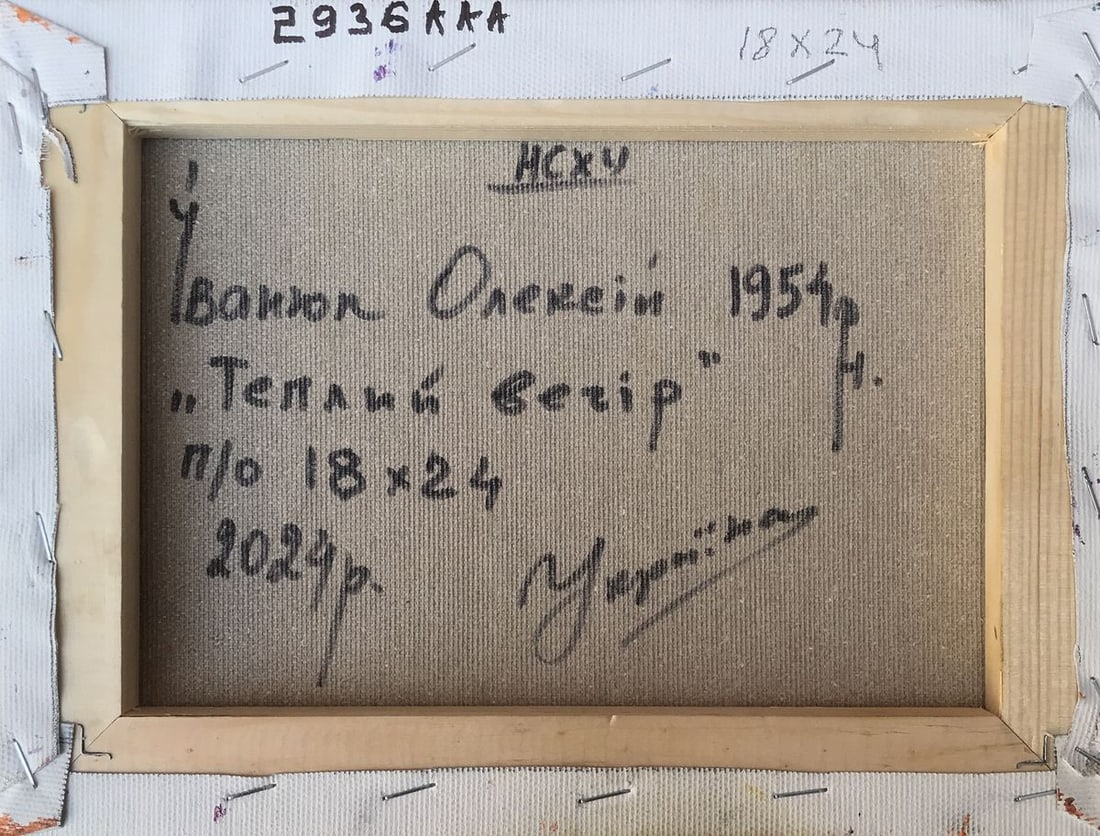 2936AAA
18x24
НСХУ
Іванюк Олексій 1954р.н.
„Теплий вечір"
п/о 18x24
2024р.
Україна